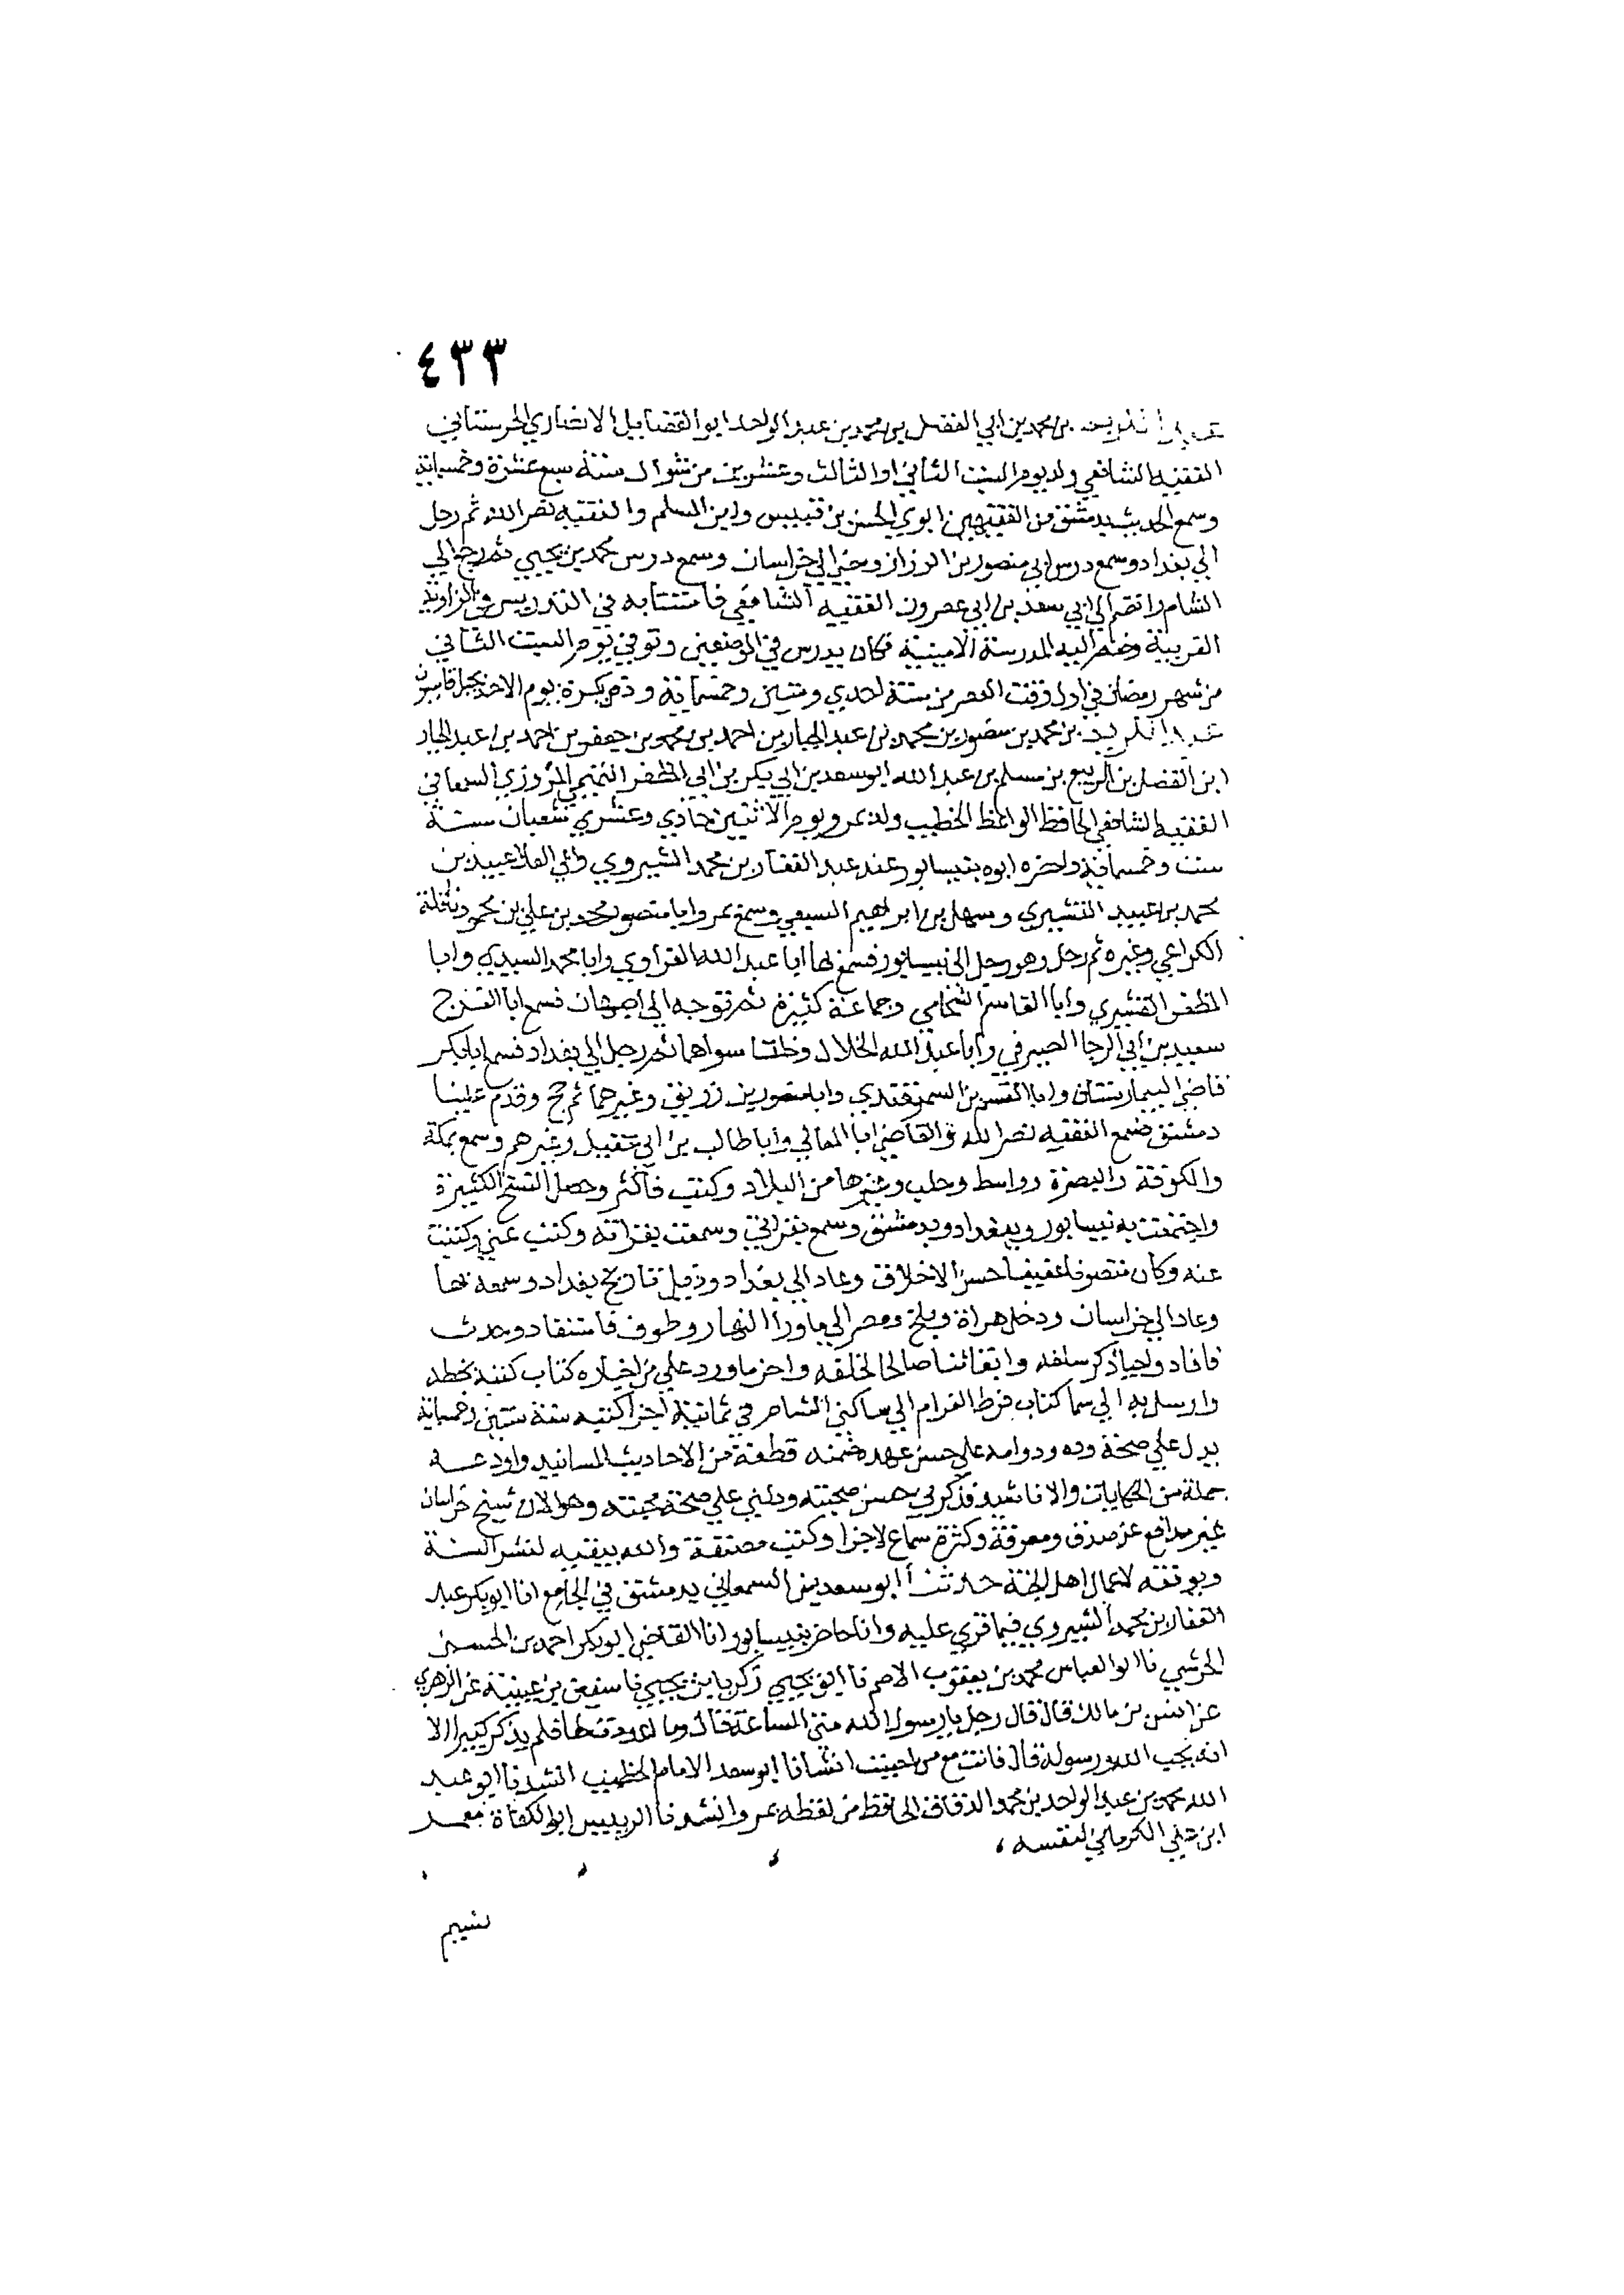 ٤٣٣
عبد الكريم بن محمد بن ابي الفضل بن محمد بن عبد الواحد ابو الفضايل الانصاري الحرستاني
الفقيه الشافعي ولد يوم السبت الثاني او الثالث وعشرين من شوال سنة سبع عشرة وخمسمائة
وسمع الحديث بدمشق من الفقيهين ابوي الحسن بن قبيس وابن المسلم والفقيه نصر الله ثم رحل
الي بغداد وسمع درس ابي منصور بن الرزاز ومضي الي خراسان وسمع درس محمد بن يحيي ثم رجع الي
الشام وانضم الي ابي سعد بن ابي عصرون الفقيه الشافعي فاستنابه في التدريس في الزاوية
الغربية وضم اليه المدرسة الامينية فكان يدرس في الموضعين وتوفي يوم السبت الثاني
من شهر رمضان في اول وقت العصر من سنة احدي وستين وخمسمائة ودفن بكرة يوم الاحد بجبل قاسيون
عبد الكريم بن محمد بن منصور بن محمد بن عبد الجبار بن احمد بن محمد بن جعفر بن احمد بن عبد الجبار
ابن الفضل بن الربيع بن مسلم بن عبد الله ابو سعد بن ابي بكر بن ابي المظفر التميمي المروزي السمعاني
الفقيه الشافعي الحافظ الواعظ الخطيب ولد بمرو يوم الاثنين حادي وعشري شعبان سنة
ست وخمسمائة واحضره ابوه بنيسابور عند عبد الغفار بن محمد الشيروي وابي العلا عبيد بن
محمد بن عبيد القشيري وسهل بن ابراهيم السبعي وسمع بمرو ابا منصور محمد بن علي بن محمود نافلة
الكراعي وغيره ثم رحل وهو رجل الي نيسابور فسمع بها ابا عبد الله الفراوي وابا محمد السيدي وابا
المظفر القشيري وابا القاسم الشحامي وجماعة كثيرة ثم توجه الي اصبهان فسمع ابا الفرج
سعيد بن ابي الرجا الصيرفي وابا عبد الله الخلال وخلقا سواهما ثم رحل الي بغداد فسمع ابا بكر
قاضي البيمارستان وابا القسم بن السمرقندي وابا منصور بن زريق وغيرهما ثم حج وقدم علينا
دمشق فسمع الفقيه نصر الله والقاضي ابا المعالي وابا طالب بن ابي عقيل وغيرهم وسمع بمكة
والكوفة والبصرة وواسط وحلب وغيرها من البلاد وكتب فاكثر وحصل النسخ الكثيرة
واجتمعت به نيسابور وببغداد وبدمشق وسمع بقراتي وسمعت بقراته وكتب عني وكتبت
عنه وكان متصونا عفيفا حسن الاخلاق وعاد الي بغداد وذيل تاريخ بغداد وسمعه بها
وعاد الي خراسان ودخل هراة وبلخ ومضي الي ماورا النهر وطوف فاستفاد وحدث
فافاد واحيا ذكر سلفه وابقا ثنا صالحا لخلفه واخر ما ورد علي من اخباره كتاب كتبه بخطه
وارسل به الي سما كتاب فرط الغرام الي ساكني الشام في ثمانية اجزا كتبه سنة ستين وخمسمائة
يدل علي صحة وده ودوامه علي حسن عهده ضمنه قطعة من الاحاديث المسانيد واودعه
جملة من الحكايات والاناشيد فذكرني بحسن صحبته ودلني علي صحة محبته وهو الان شيخ خراسان
غير مدافع عن صدق ومعرفة وكثرة سماع لاجزا وكتب مصنفة والله يبقيه لنشر السنة
ويوفقه لاعمال اهل الجنة حدثنا ابو سعد بن السمعاني بدمشق في الجامع انا ابو بكر عبد
الغفار بن محمد الشيروي فيما قري عليه وانا حاضر بنيسابور انا القاضي ابو بكر احمد بن الحسن
الحرشي نا ابو العباس محمد بن يعقوب الاصم نا ابو يحيي زكريا بن يحيي نا سفين بن عيينة عن الزهري
عن انس بن مالك قال قال رجل يا رسول الله متي الساعة قال وما اعددت لها فلم يذكر كبيرا الا
انه يحب الله ورسوله قال فانت مع من احببت انشانا ابو سعد الامام الخطيب انشدنا ابو عبد
الله محمد بن عبد الواحد بن محمد الدقاق الحافظ من لفظه بمرو انشدنا الرييس ابو الكفاة محمد
ابن علي الكرماني لنفسه ،
نسيم